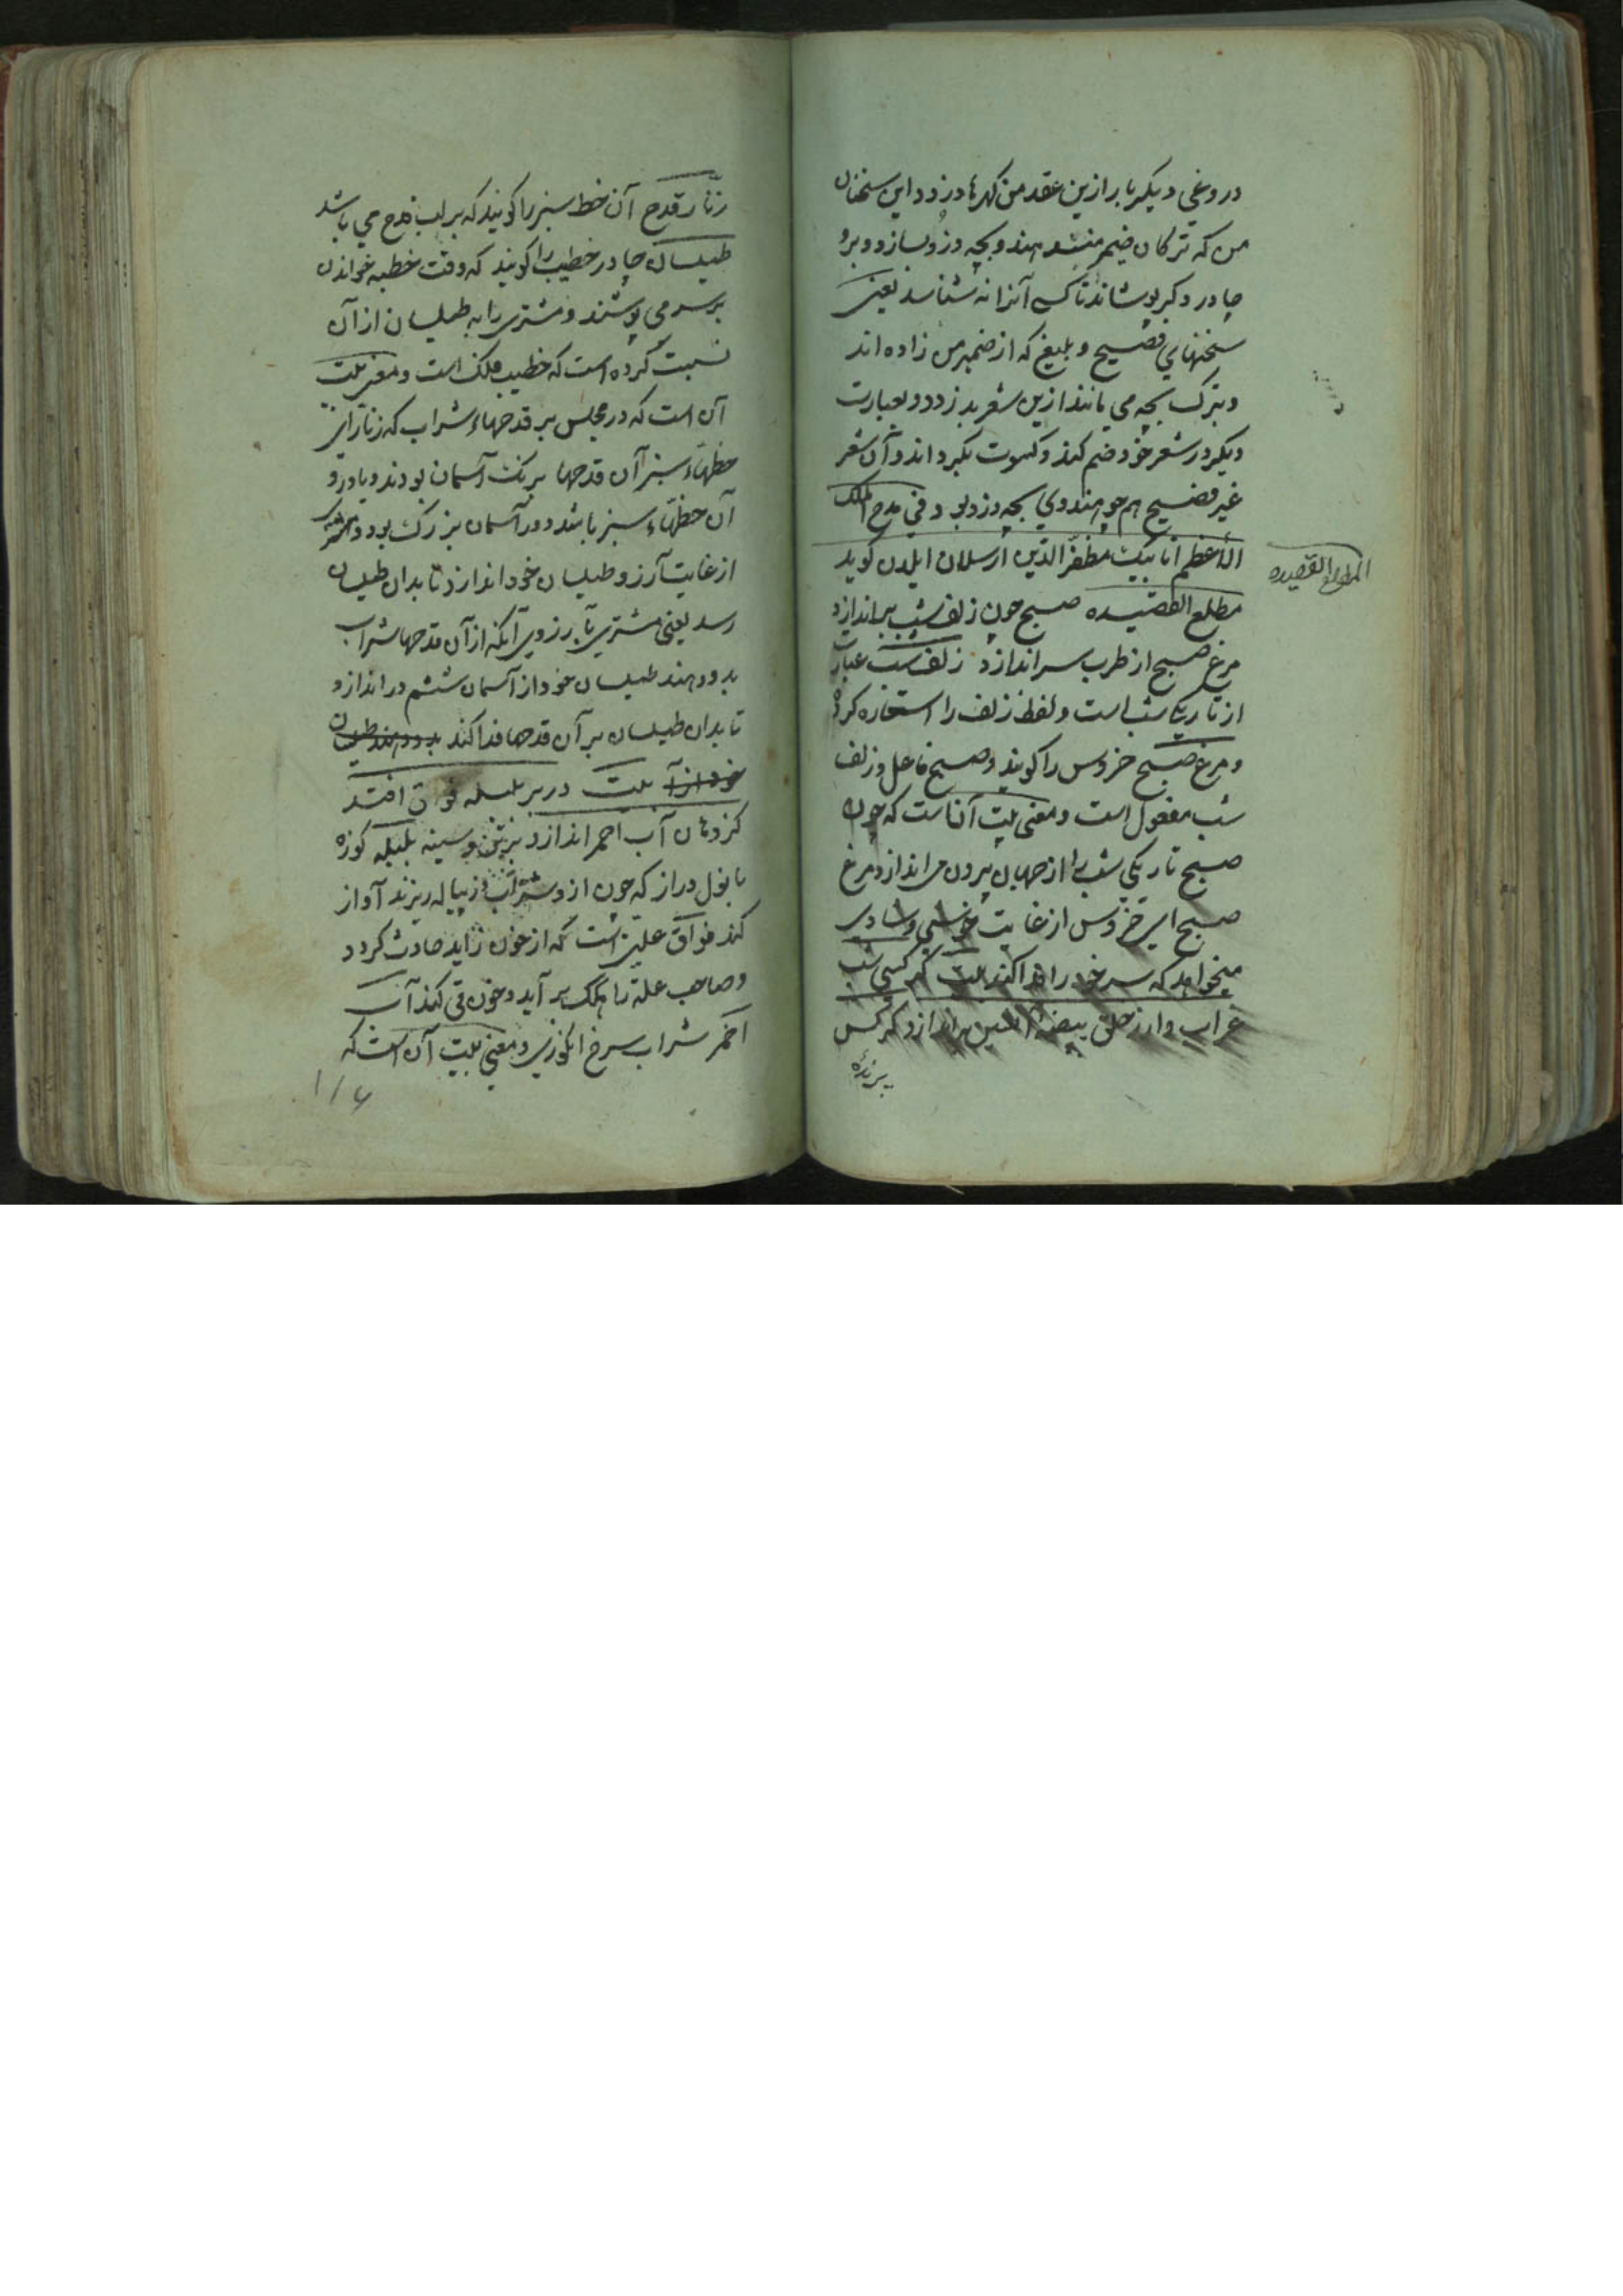 دروغی دیگر بار ازین عقد من گهرها دزدد این سخنان
من که ترکان ضمیر منند هندو بچه دزد سازد و برو
چادر دگر پوشاند تا کسی آنرا نه شناسد یعنی
سخنهای فصیح و بلیغ که از ضمیر من زاده اند
و بترک بچه می مانند ازین شعر بدزدد و بعبارت
دیگر در شعر خود ضم کند و کسوت بگرداند و آن شعر
غیر فصیح هم چو هندوی بچه دزد بود فی مدح الملک
الأعظم اتابیک مظفر الدین ارسلان ایلدن گوید
مطلع القصیده صبح چون زلف شب براندازد
مرغ صبح از طرب سر اندازد زلف شب عبارت
از تاریکی شب است و لفظ زلف را استعاره کرده
و مرغ صبح خروس را گویند و صبح فاعل و زلف
شب مفعول است و معنی بیت آنست که چون
صبح تاریکی شب را از جهان بیرون می اندازد مرغ
صبح ای خروس از غایت خوشی و شادی
میخواهد که سر خود را فدا کند بیت کرکسی شب
غراب وار ز حلق بیضه آتشین براندازد کرکس
پرنده
المطلع القصیده
زنار قدح آن خط سبز را گویند که بر لب قدح می باشد
طیلسان چادر خطیب را گویند که وقت خطبه خواندن
بر سر می پوشند و مشتری را به طیلسان از آن
نسبت کرده است که خطیب فلک است و معنی بیت
آن است که در مجلس بر قدحهاء شراب که زنار ای
خطهاء سبز آن قدحها برنگ آسمان بودند و یا درو
آن خطهاء سبز باشد و در آسمان بزرگ بود و مشتری
از غایت آرزو طیلسان خود اندازد تا بدان طیلسان
رسد یعنی مشتری بآرزوی آنکه از آن قدحها شراب
بدو دهند طیلسان خود از آسمان ششم در اندازد
تا بدان طیلسان بر آن قدحها فدا کند بدو دهند طیلسان
خود از آ بیت در بر بلبله فواق افتد
کز دهان آب احمر اندازد بر تن و سینه بلبله کوزه
با نول دراز که چون ازو شراب در پیاله ریزند آواز
کند فواق علتی است که از خون زاید حادث گردد
و صاحب علة را هکک بر آید و خون قی کند آب
احمر شراب سرخ انگوری و معنی بیت آن است که
۱۱۶